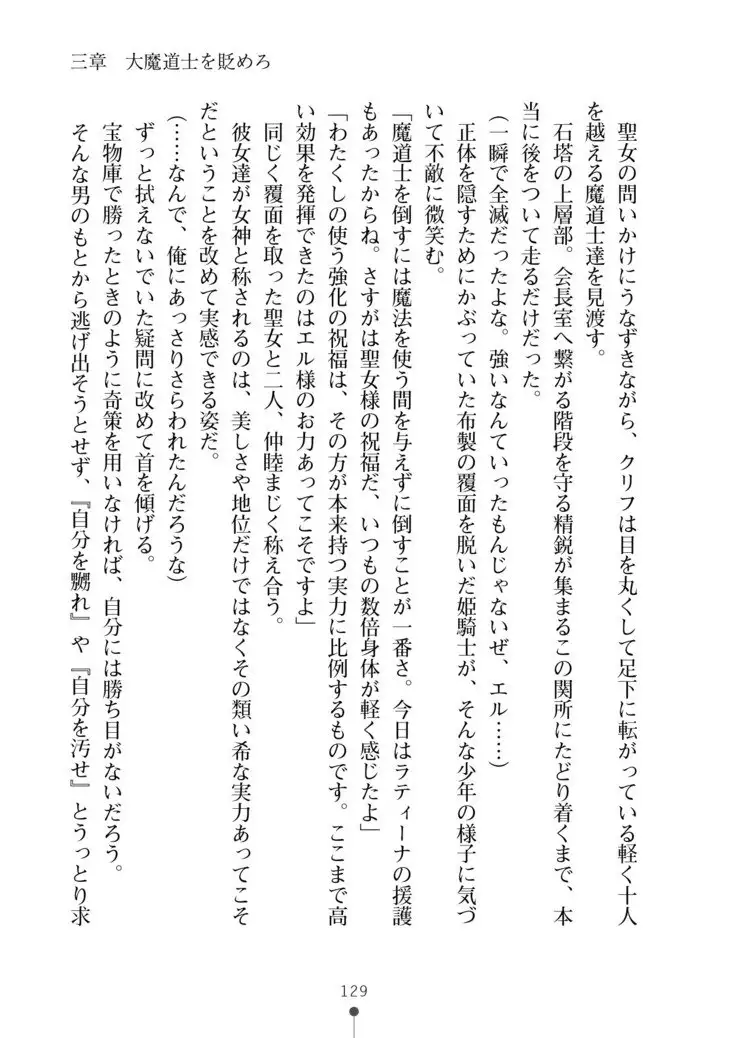 三章　大魔道士を貶めろ
聖女の問いかけにうなずきながら、クリフは目を丸くして足下に転がっている軽く十人
を越える魔道士達を見渡す。
石塔の上層部。会長室へ繋がる階段を守る精鋭が集まるこの関所にたどり着くまで、本
当に後をついて走るだけだった。
（一瞬で全滅だったよな。強いなんていったもんじゃないぜ、エル……）
正体を隠すためにかぶっていた布製の覆面を脱いだ姫騎士が、そんな少年の様子に気づ
いて不敵に微笑む。
「魔道士を倒すには魔法を使う間を与えずに倒すことが一番さ。今日はラティーナの援護
もあったからね。さすがは聖女様の祝福だ、いつもの数倍身体が軽く感じたよ」
「わたくしの使う強化の祝福は、その方が本来持つ実力に比例するものです。ここまで高
い効果を発揮できたのはエル様のお力あってこそですよ」
同じく覆面を取った聖女と二人、仲睦まじく称え合う。
彼女達が女神と称されるのは、美しさや地位だけではなくその類い希な実力あってこそ
だということを改めて実感できる姿だ。
（……なんで、俺にあっさりさらわれたんだろうな）
ずっと拭えないでいた疑問に改めて首を傾げる。
宝物庫で勝ったときのように奇策を用いなければ、自分には勝ち目がないだろう。
そんな男のもとから逃げ出そうとせず、『自分を嬲れ』や『自分を汚せ』とうっとり求
129